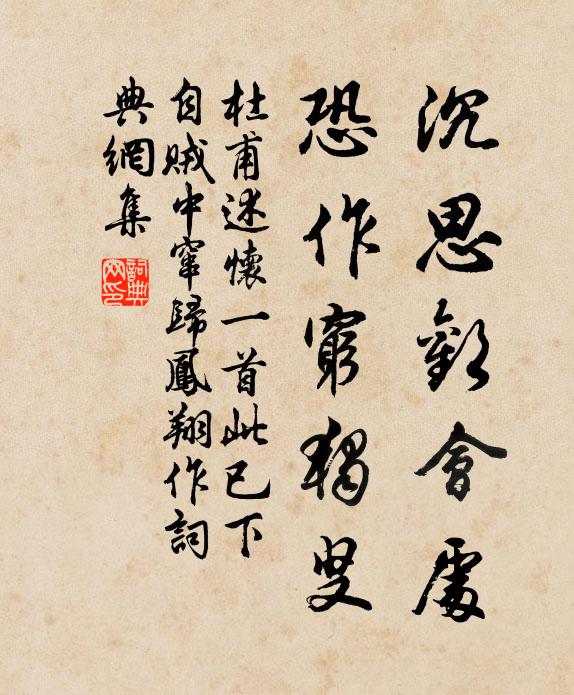 沉思歡會處
恐作窮獨叟
杜甫述懷一首此已下
自賊中竄歸鳳翔作詞
典網集
詞典網印